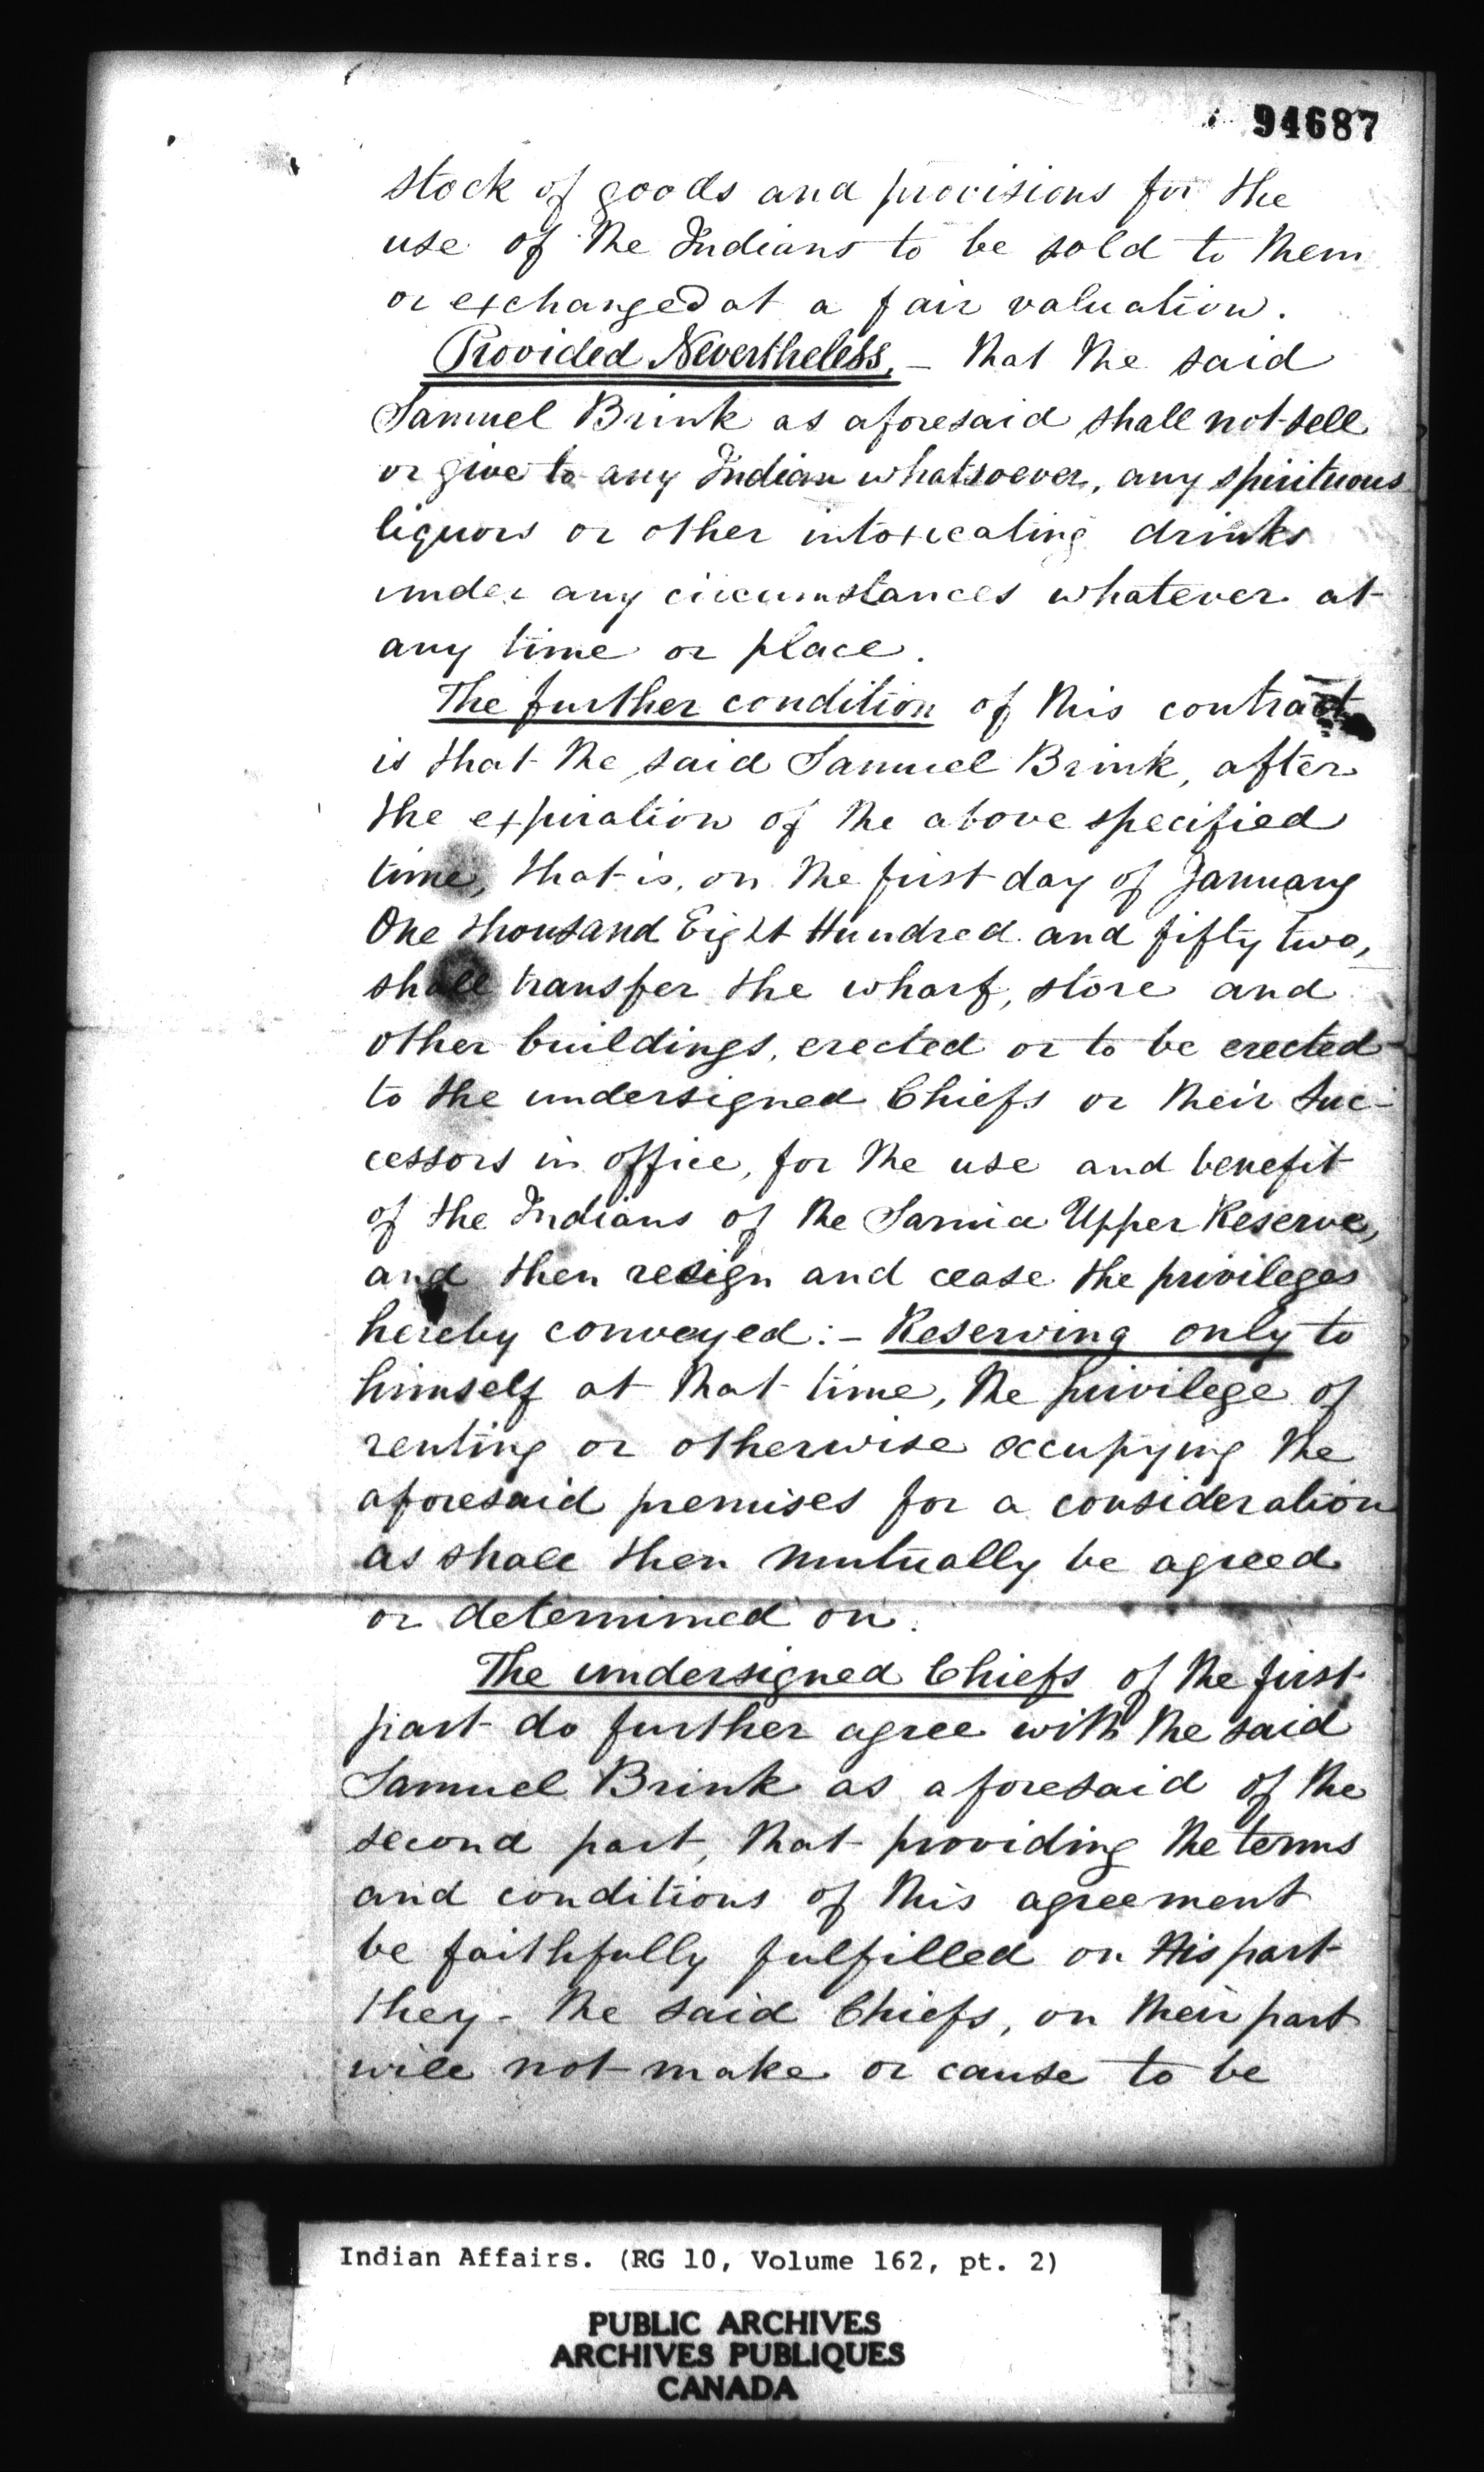 94687
stock of goods and provisions for the
use of the Indians to be sold to them
or exchanged at a fair valuation.
Provided Nevertheless, - that the said
Samuel Brink as aforesaid shall not sell
or give to any Indian whatsoever, any spirituous
liquors or other intoxicating drinks
under any circumstances whatever at
any time or place.
The further condition of this contract
is that the said Samuel Brink, after
the expiration of the above specified
time, that is, on the first day of January
One thousand Eight Hundred and fifty two,
shall transfer the wharf, store and
other buildings, erected or to be erected
to the undersigned Chiefs or their Suc-
cessors in office, for the use and benefit
of the Indians of the Sarnia Upper Reserve,
and then resign and cease the privileges
hereby conveyed:- Reserving only to
himself at that time, the privilege of
renting or otherwise occupying the
aforesaid premises for a consideration
as shall then mutually be agreed
or determined on.
The undersigned Chiefs of the first
part do further agree with the said
Samuel Brink as aforesaid of the
second part, that providing the terms
and conditions of this agreement
be faithfully fulfilled on His part
they - the said Chiefs, on their part
will not make or cause to be
Indian Affairs. (RG 10, Volume 162, pt. 2)
PUBLIC ARCHIVES
ARCHIVES PUBLIQUES
CANADA